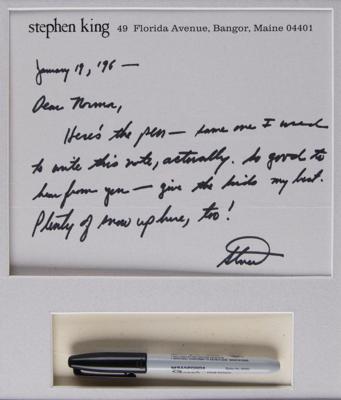 stephen king 49 Florida Avenue, Bangor, Maine 04401
January 19, '96 —
Dear Norma,
Here's the pen — same one I used
to write this note, actually. So good to
hear from you — give the kids my best.
Plenty of snow up here, too!
Steve